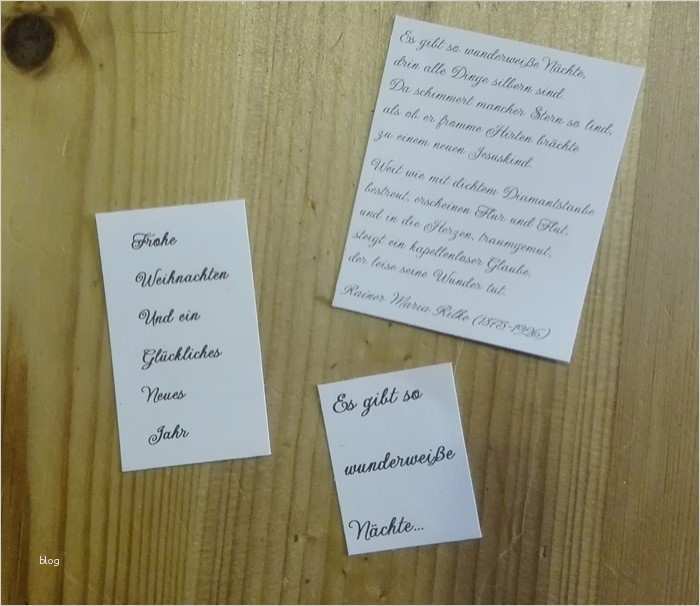 Es gibt so wunderweiße Nächte,
drin alle Dinge silbern sind.
Da schimmert mancher Stern so lind,
als ob er fromme Hirten brächte
zu einem neuen Jesuskind.
Weit wie mit dichtem Diamantstaube
bestreut, erscheinen Flur und Flut,
und in die Herzen, traumgemut,
steigt ein kapellenloser Glaube,
der leise seine Wunder tut.
Rainer Maria Rilke (1875-1926)
Frohe
Weihnachten
Und ein
Glückliches
Neues
Jahr
Es gibt so
wunderweiße
Nächte...
blog